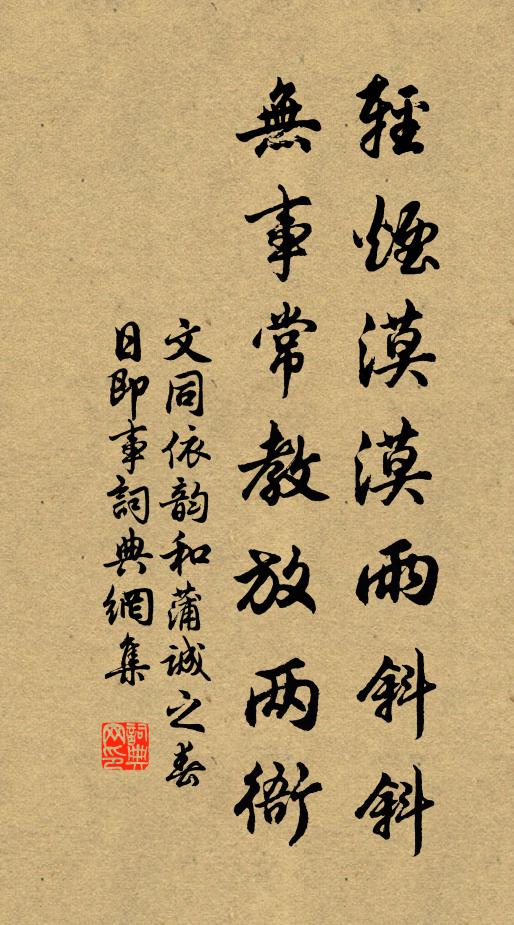 輕煙漠漠雨斜斜
無事常教放两衙
文同依韵和蒲誠之春
日即事詞典網集
詞典
网印